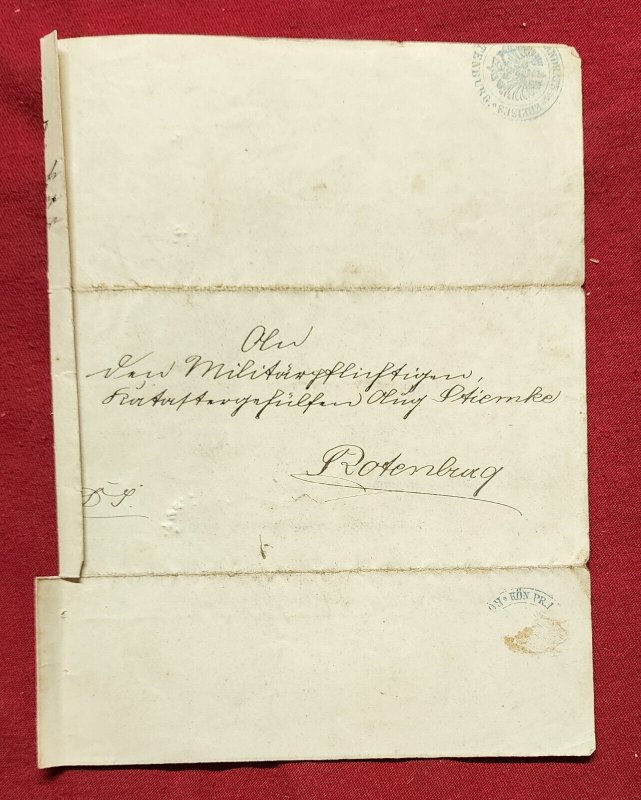 TENBURG. * KREISES
An
den Militärpflichtigen,
Katastergehülfen Aug Stiemke
Rotenburg
D. S.
KÖN PR.